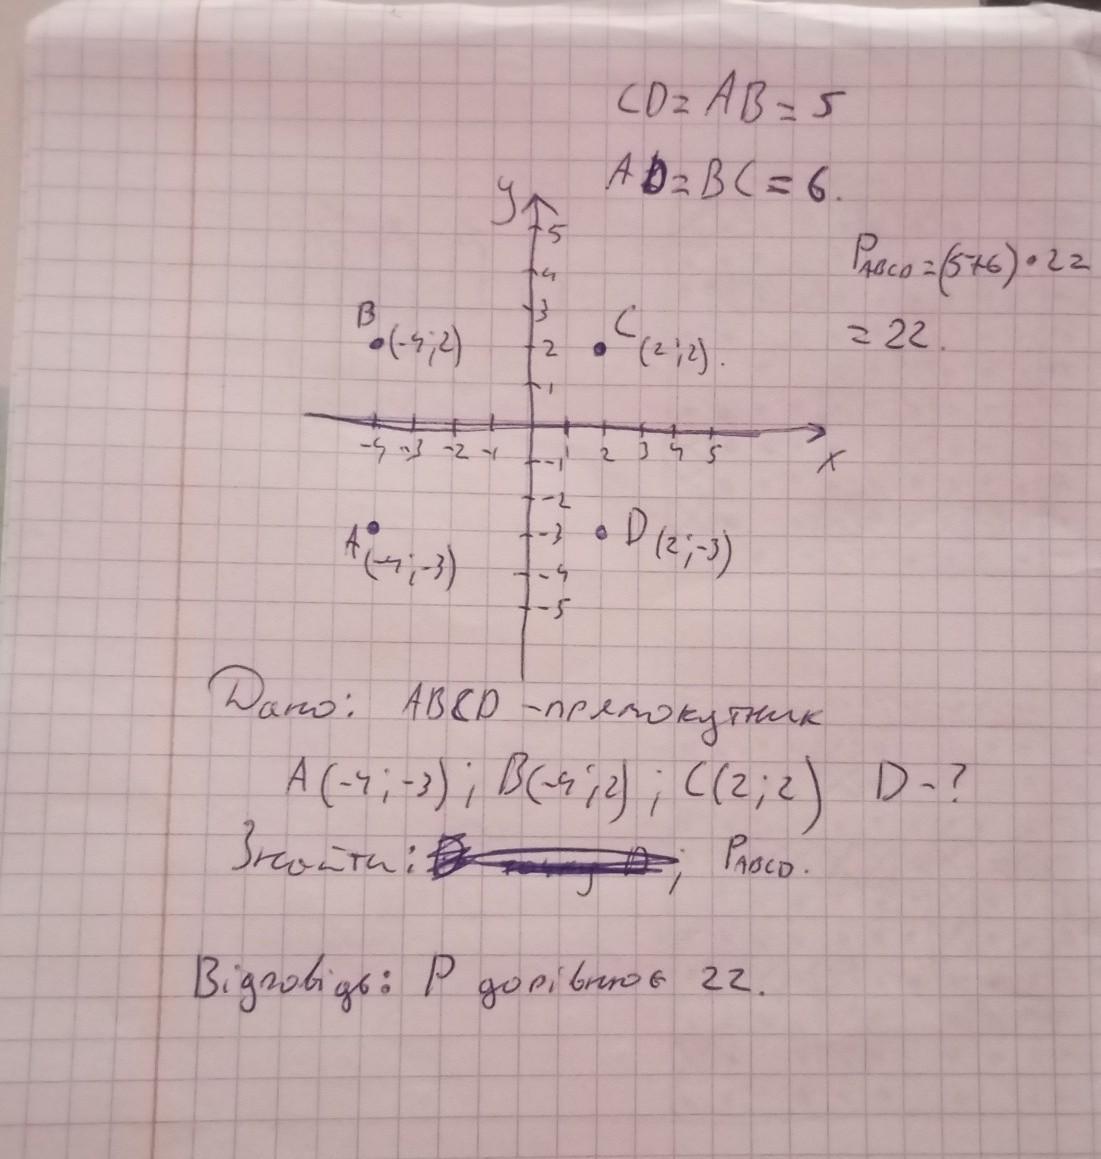 CD = AB = 5
AD = BC = 6.
y
5
4
3
2
1
P_ABCD = (5+6) · 22
= 22.
B (-4; 2)
C (2; 2).
-4 -3 -2 -1 1 2 3 4 5
x
-1
-2
-3
-4
-5
A (-4; -3)
D (2; -3)
Дано: ABCD - прямокутник
A(-4; -3); B(-4; 2); C(2; 2) D - ?
Знайти: ; P_ABCD.
Відповідь: P дорівнює 22.